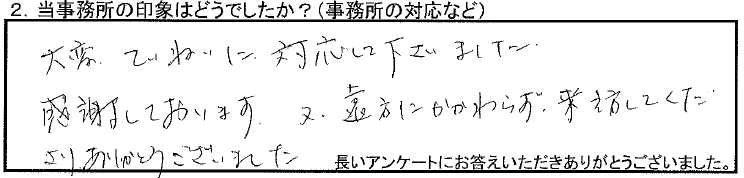 2．当事務所の印象はどうでしたか？（事務所の対応など）
大変、ていねいに対応して下さいました。
感謝しております。又、遠方にかかわらず、来訪してくだ
さりありがとうございました
長いアンケートにお答えいただきありがとうございました。